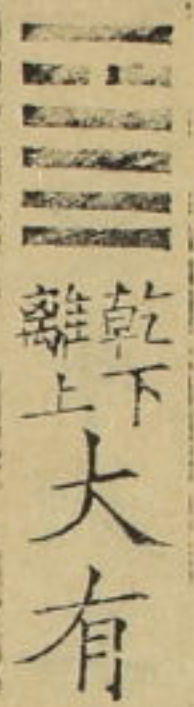 乾下
離上
大有